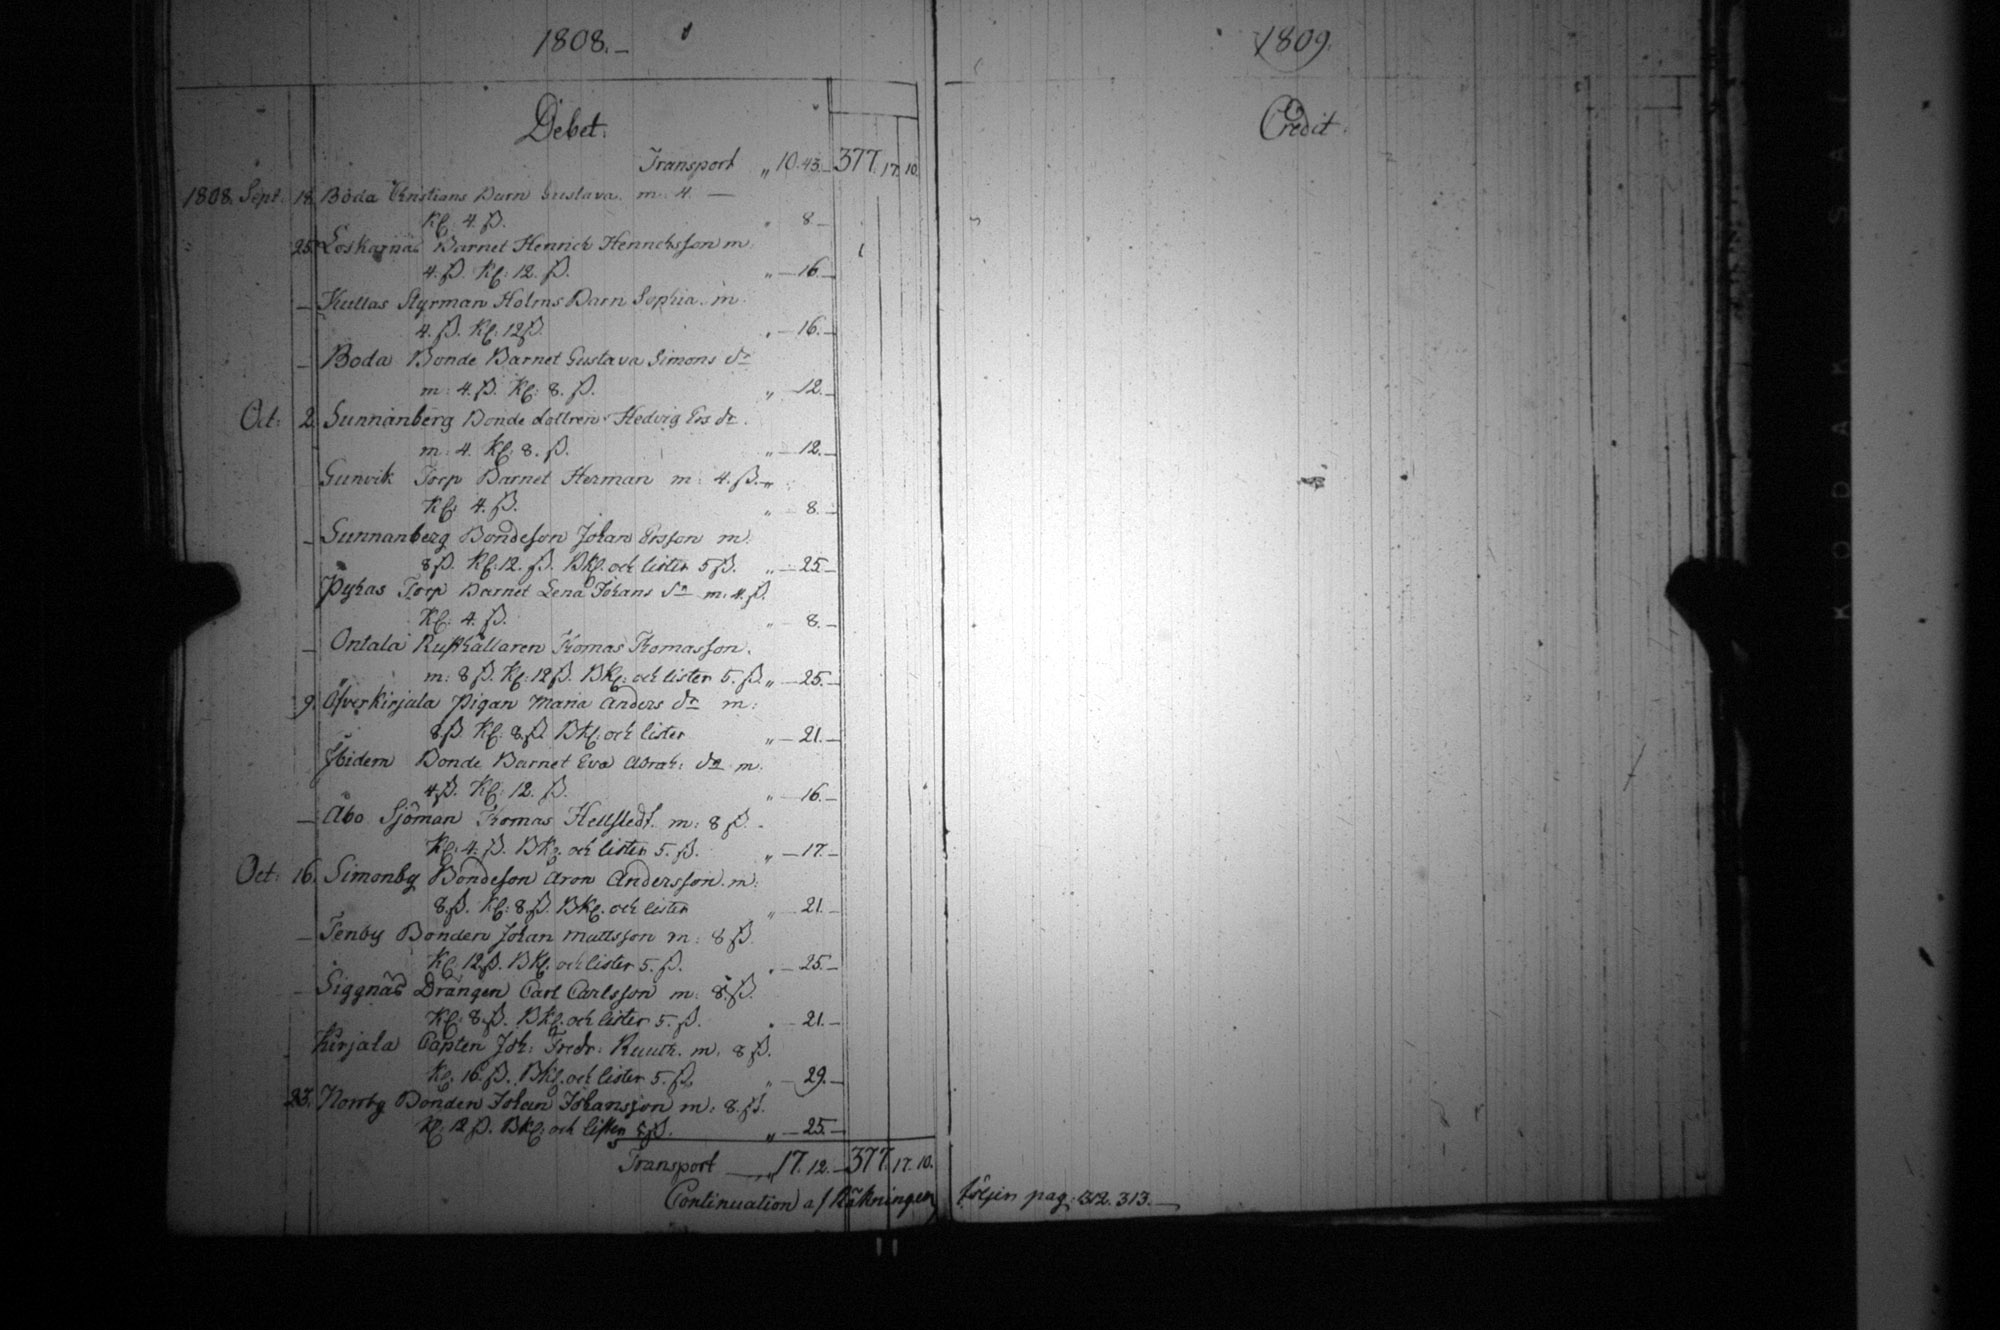 1808.
Debet.
Transport „ 10. 43. 377. 17. 10.
1808. Sept: 18. Böda Christians Barn Gustava. m: 4. —
Kl: 4. ß. „ 8 —
25. Loskarnäs Barnet Henrich Henrichsson m:
4. ß. Kl: 12. ß. „ — 16. —
— Kullas Styrman Holms Barn Sophia. m.
4. ß. Kl: 12 ß. „ — 16. —
— Boda Bonde Barnet Gustava Simons dr
m: 4. ß. Kl: 8. ß. „ — 12. —
Oct: 2. Sunnanberg Bonde dottren Hedvig Ers dr.
m: 4. Kl: 8. ß. „ — 12. —
Gunvik Torp Barnet Herman m: 4. ß.
Kl: 4. ß. „ — 8. —
— Sunnanberg Bondeson Johan Ersson m:
8 ß. Kl: 12. ß. BKl. och lister 5 ß. „ — 25 —
Pyhas Torp Barnet Lena Johans dr m: 4. ß.
Kl: 4. ß. „ — 8. —
— Ontala Rusthållaren Thomas Thomasson.
m: 8 ß. Kl: 12 ß. BKl: och lister 5. ß. „ — 25. —
9. Öfverkirjala Pigan Maria Anders dr m:
8 ß. Kl: 8. ß. BKl: och lister „ — 21. —
Ibidem Bonde Barnet Eva Abrah: dr m.
4 ß. Kl: 12. ß. „ — 16. —
— Åbo Sjöman Thomas Hellstedt. m: 8 ß. —
Kl: 4. ß. BKl. och lister 5. ß. „ — 17. —
Oct: 16. Simonby Bondeson Aron Andersson. m:
8. ß. Kl: 8 ß. BKl. och lister „ — 21. —
— Tenby Bonden Johan Mattsson m: 8 ß.
Kl: 12 ß. BKl. och lister 5. ß. „ — 25. —
— Siggnäs Drängen Carl Carlsson m: 8. ß.
Kl: 8. ß. BKl. och lister 5. ß. „ — 21. —
— Kirjala Capten Joh: Fredr: Ruuth. m: 8 ß.
Kl: 16. ß. BKl. och lister 5. ß. „ — 29. —
23. Norrby Bonden Johan Johansson m: 8. ß.
Kl: 12 ß. BKl: och lister 5 ß. „ — 25. —
Transport — „ 17. 12. — 377. 17. 10.
Continuation af Räkningen följer pag: 312. 313. —
1809.
Credit.
KODAK SAFE